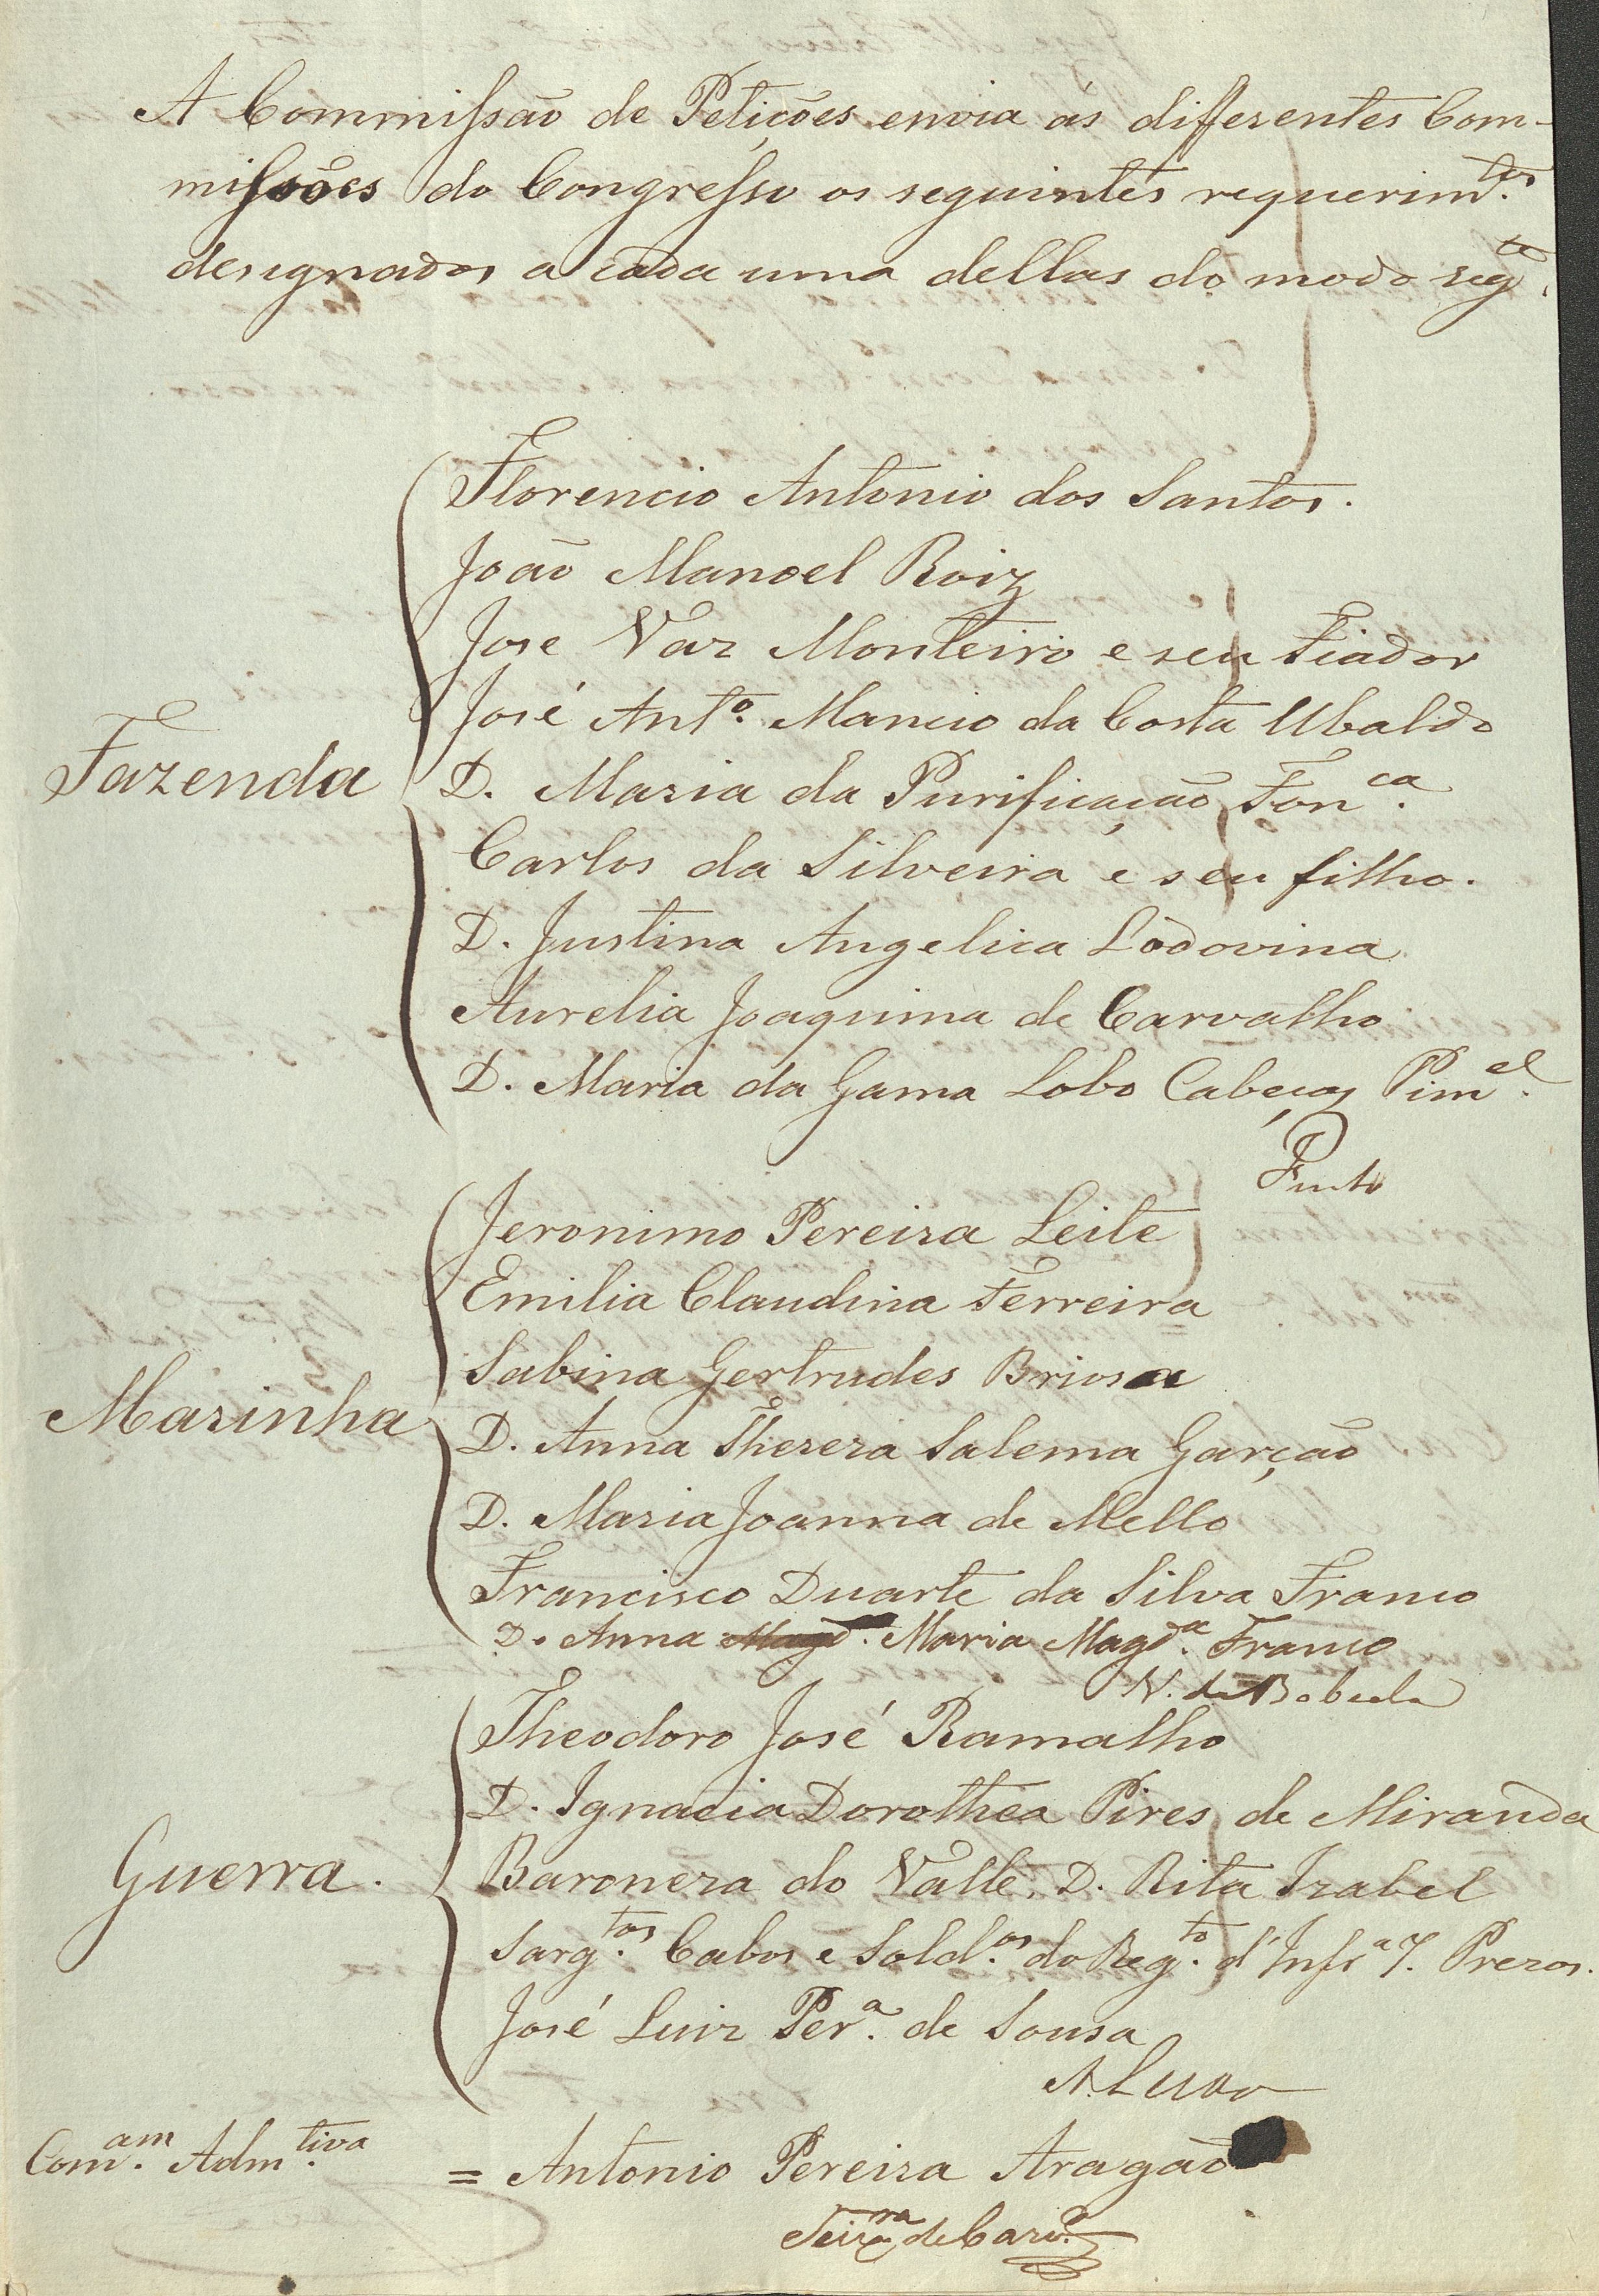 A Commissão de Petições envia ás differentes Com-
missões do Congresso os seguintes requerim.tos
designados a cada uma dellas do modo seg.te
Florencio Antonio dos Santos.
João Manoel Roiz
Jose Vaz Monteiro e seu Fiador
José Ant.o Mancio da Costa Ubaldo
Fazenda
D. Maria da Purificação Fon.ca
Carlos da Silveira e seu filho.
D. Justina Angelica Lodovina
Aurelia Joaquina de Carvalho
D. Maria da Gama Lobo Cabeças Pim.el
Pinto
Jeronimo Pereira Leite
Emilia Claudina Ferreira
Sabina Gertrudes Briosa
Marinha
D. Anna Thereza Salema Garção
D. Maria Joanna de Mello
Francisco Duarte da Silva Franco
D. Anna Magd.a Maria Magd.a Franco
Theodoro José Ramalho
D. Ignacia Dorothea Pires de Miranda
Guerra.
Baroneza do Valle, D. Rita Izabel
Sarg.tos Cabos e Sold.os do Reg.to d'Inf.a 7. Prezos.
José Luiz Per.a de Sousa
Com.am Adm.tiva
= Antonio Pereira Aragão